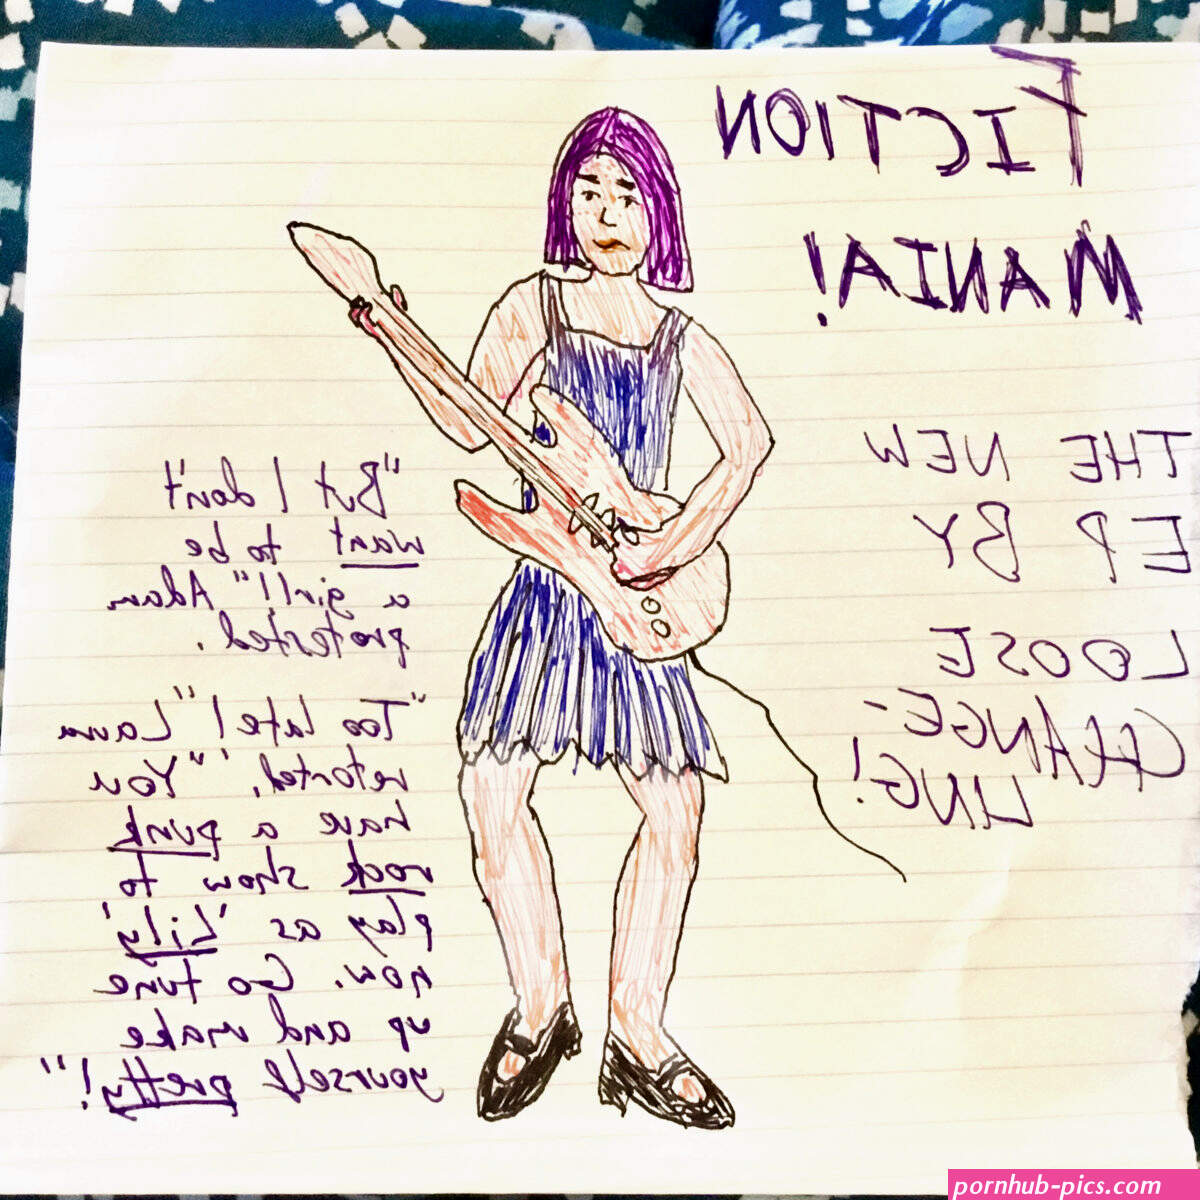 FICTION
MANIA!
THE NEW
EP BY
LOOSE
CHANGE-
LING!
"But I don't
want to be
a girl!" Adam
protested.
"Too late!" Laura
retorted, "You
have a punk
rock show to
play as 'Lily'
now. Go tune
up and make
yourself pretty!"
pornhub-pics.com